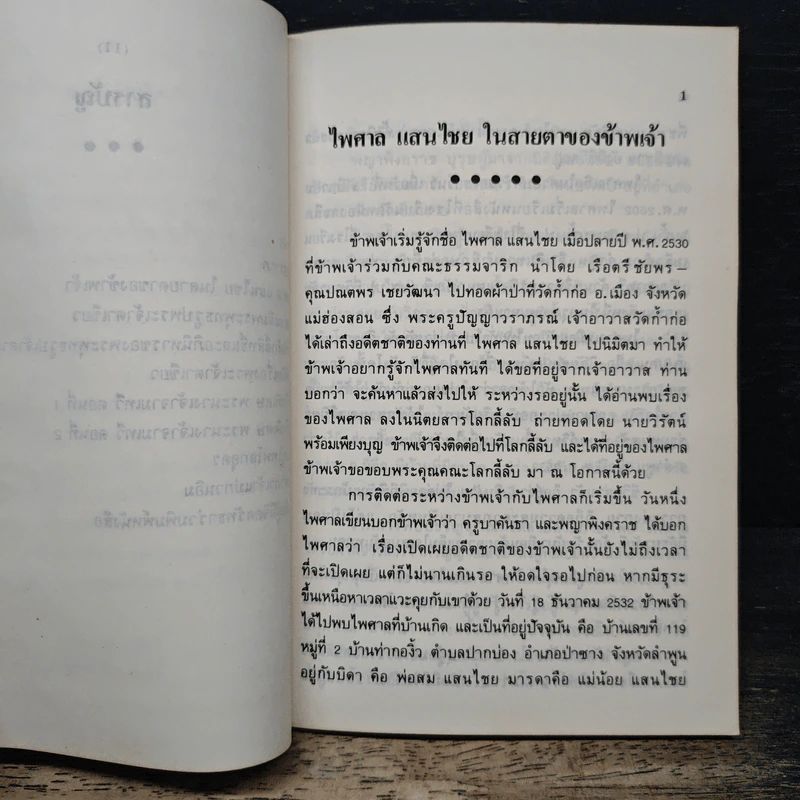 1
ไพศาล แสนไชย ในสายตาของข้าพเจ้า
ข้าพเจ้าเริ่มรู้จักชื่อ ไพศาล แสนไชย เมื่อปลายปี พ.ศ. 2530
ที่ข้าพเจ้าร่วมกับคณะธรรมจาริก นำโดย เรือตรีชัยพร –
คุณปณตพร เชยวัฒนา ไปทอดผ้าป่าที่วัดก้ำก่อ อ.เมือง จังหวัด
แม่ฮ่องสอน ซึ่ง พระครูปัญญาวราภรณ์ เจ้าอาวาสวัดก้ำก่อ
ได้เล่าถึงอดีตชาติของท่านที่ ไพศาล แสนไชย ไปนิมิตมา ทำให้
ข้าพเจ้าอยากรู้จักไพศาลทันที ได้ขอที่อยู่จากเจ้าอาวาส ท่าน
บอกว่า จะค้นหาแล้วส่งไปให้ ระหว่างรออยู่นั้น ได้อ่านพบเรื่อง
ของไพศาล ลงในนิตยสารโลกลี้ลับ ถ่ายทอดโดย นายวิรัตน์
พร้อมเพียงบุญ ข้าพเจ้าจึงติดต่อไปที่โลกลี้ลับ และได้ที่อยู่ของไพศาล
ข้าพเจ้าขอขอบพระคุณคณะโลกลี้ลับ มา ณ โอกาสนี้ด้วย
การติดต่อระหว่างข้าพเจ้ากับไพศาลก็เริ่มขึ้น วันหนึ่ง
ไพศาลเขียนบอกข้าพเจ้าว่า ครูบาคันธา และพญาพิงคราช ได้บอก
ไพศาลว่า เรื่องเปิดเผยอดีตชาติของข้าพเจ้านั้นยังไม่ถึงเวลา
ที่จะเปิดเผย แต่ก็ไม่นานเกินรอ ให้อดใจรอไปก่อน หากมีธุระ
ขึ้นเหนือหาเวลาแวะคุยกับเขาด้วย วันที่ 18 ธันวาคม 2532 ข้าพเจ้า
ได้ไปพบไพศาลที่บ้านเกิด และเป็นที่อยู่ปัจจุบัน คือ บ้านเลขที่ 119
หมู่ที่ 2 บ้านท่ากองิ้ว ตำบลปากบ่อง อำเภอป่าซาง จังหวัดลำพูน
อยู่กับบิดา คือ พ่อสม แสนไชย มารดาคือ แม่น้อย แสนไชย